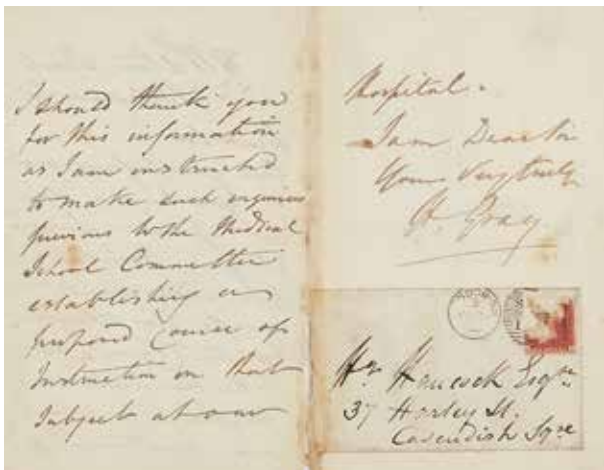 I should thank you
for this information
as I am instructed
to make such inquiries
previous to the Medical
School Committee
establishing a
proposed Course of
Instruction on that
subject at our
Hospital.
I am Dear Sir
Yours Very truly
H. Gray
Hy. Hancock Esqre.
37 Harley St.
Cavendish Sqre